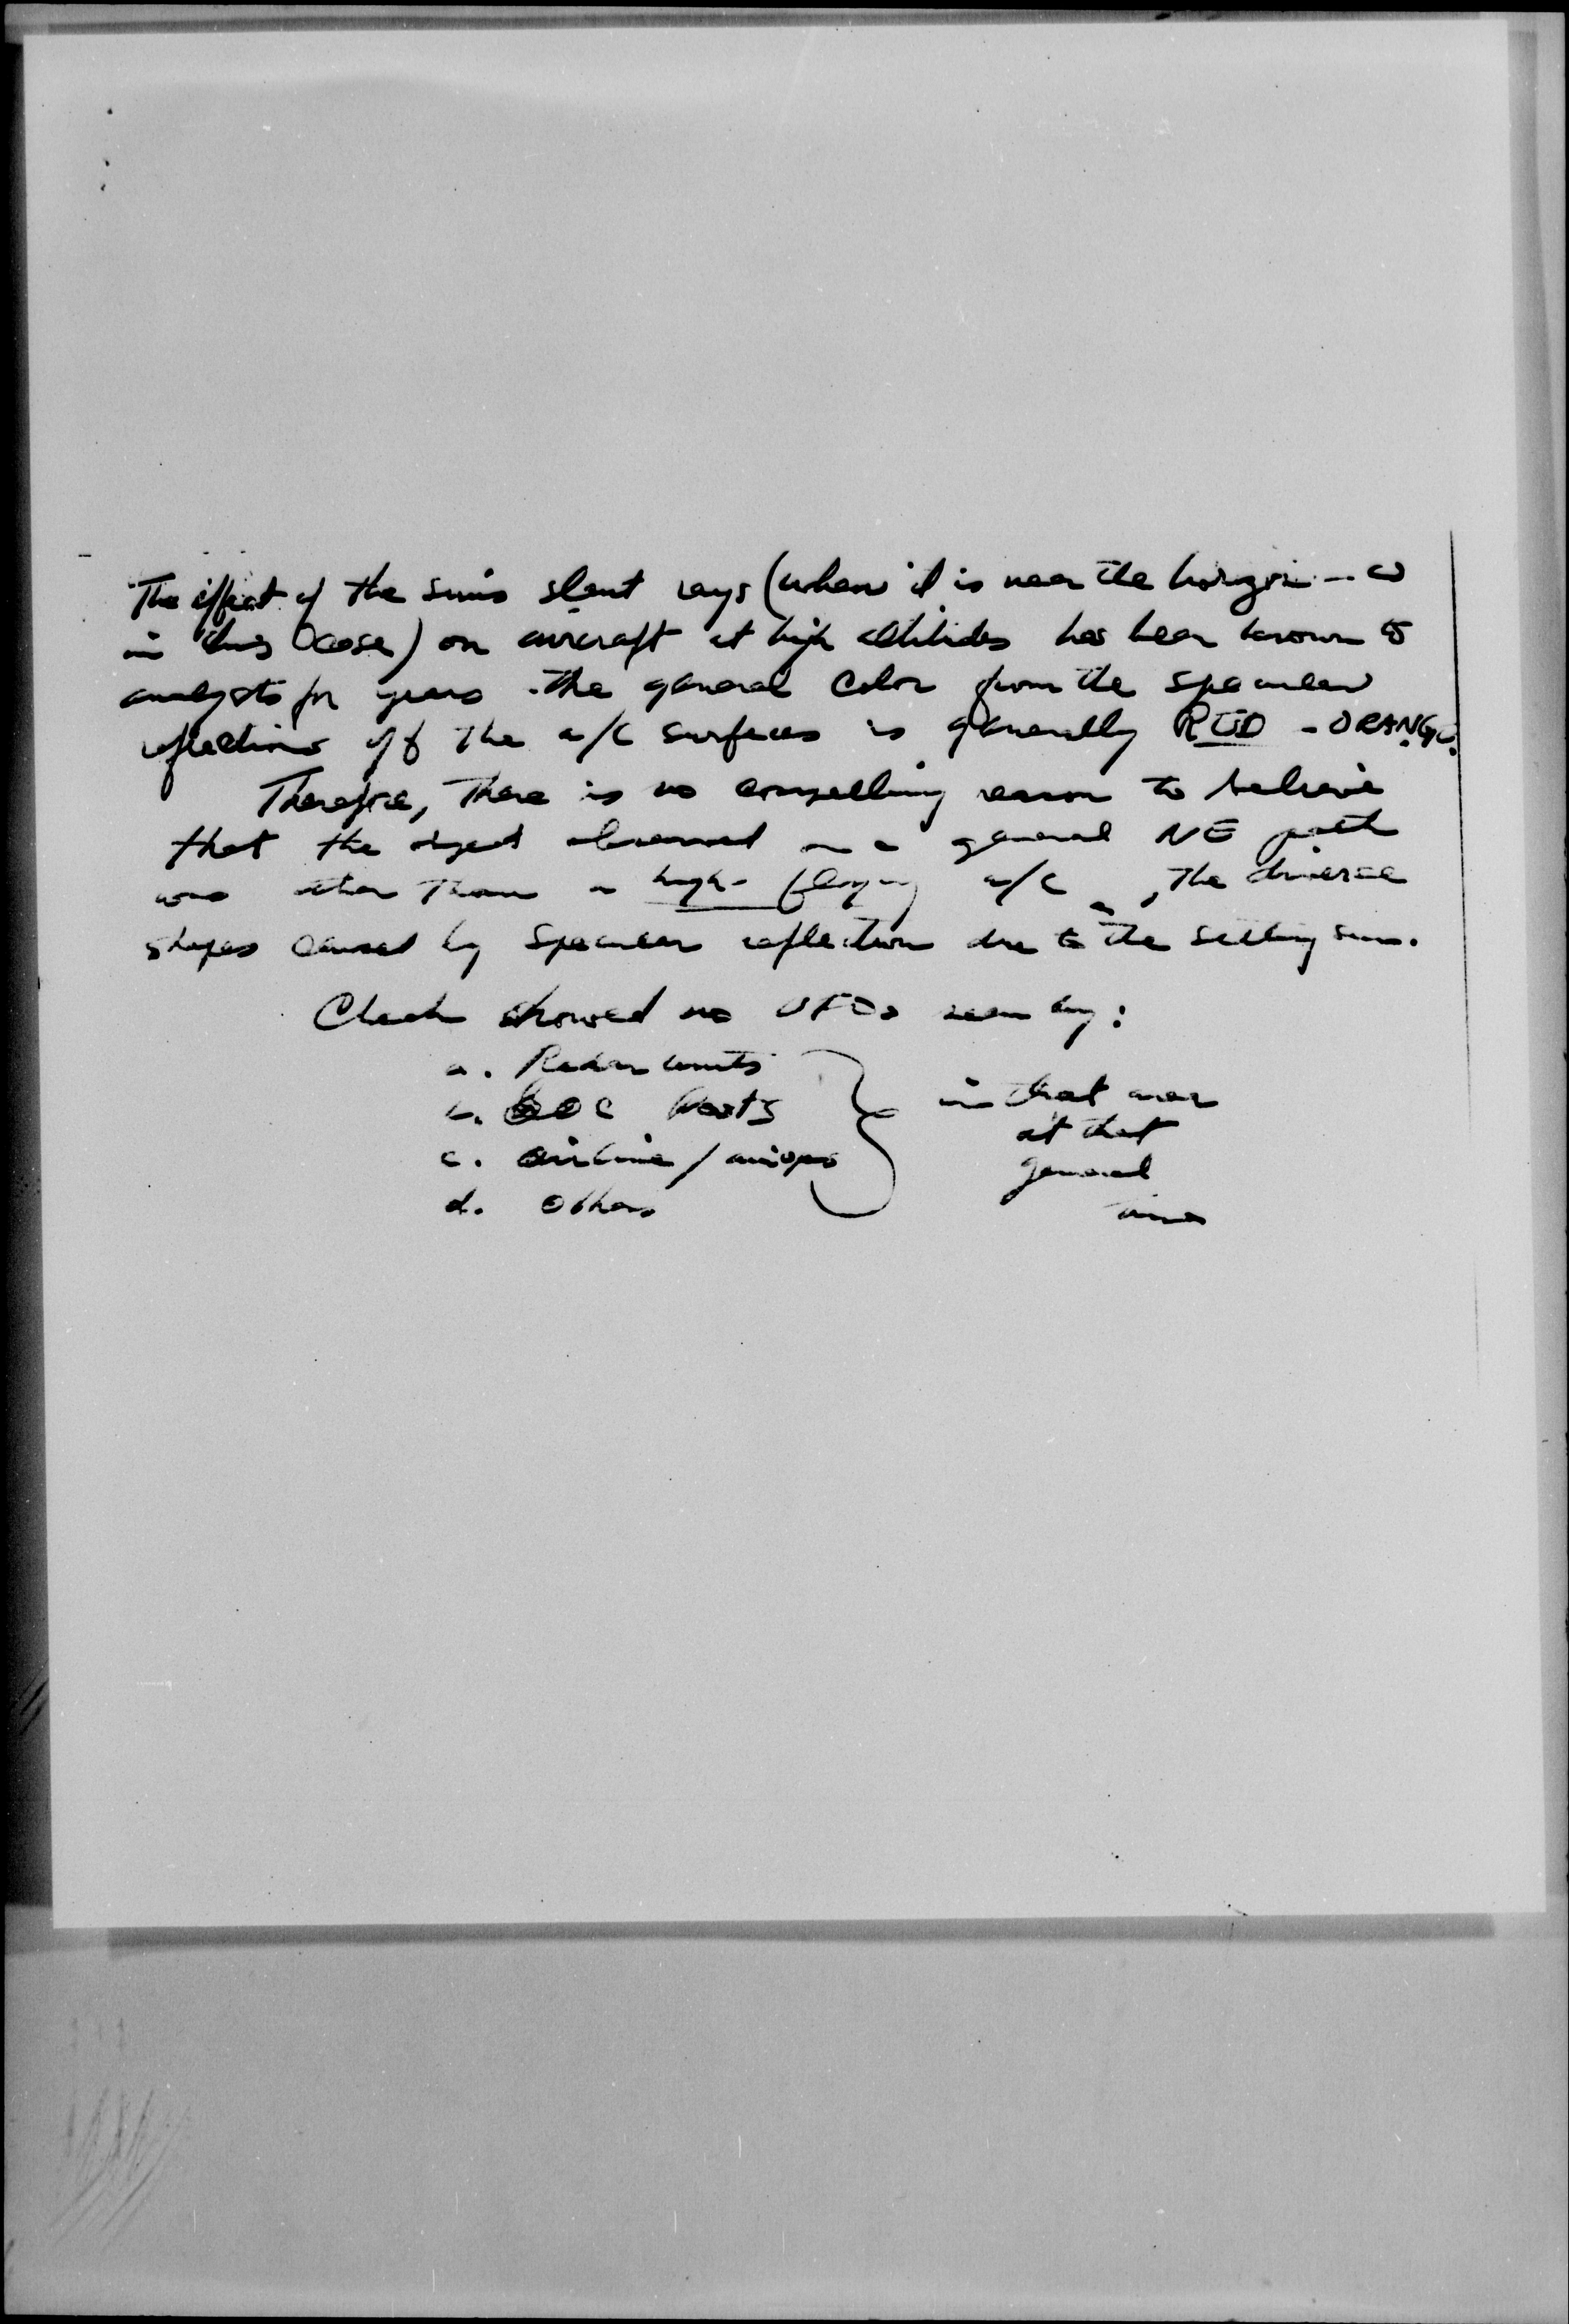 The effect of the sun's slant rays (when it is near the horizon - as
in this case) on aircraft at high altitudes has been known to
analysts for years. The general color from the specular
reflections off the a/c surfaces is generally RED - ORANGE.
Therefore, there is no compelling reason to believe
that the object observed on a general NE path
was other than a high-flying a/c, the diverse
shapes caused by specular reflection due to the setting sun.
Check showed no UFOs seen by:
a. Radar units
b. GOC Posts
c. airline /
d. Others
in that area
at that
general
time